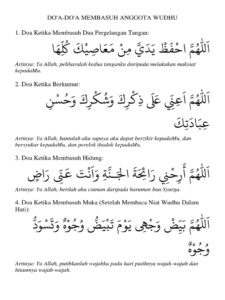 DO'A-DO'A MEMBASUH ANGGOTA WUDHU
1. Doa Ketika Membasuh Dua Pergelangan Tangan:
اَللّٰهُمَّ احْفَظْ يَدَيَّ مِنْ مَعَاصِيْكَ كُلِّهَا
Artinya: Ya Allah, peliharalah kedua tanganku daripada melakukan maksiat
kepadaMu.
2. Doa Ketika Berkumur:
اَللّٰهُمَّ اَعِنِّي عَلَى ذِكْرِكَ وَشُكْرِكَ وَحُسْنِ
عِبَادَتِكَ
Artinya: Ya Allah, bantulah aku supaya aku dapat berzikir kepadaMu, dan
bersyukur kepadaMu, dan perelok ibadah kepadaMu.
3. Doa Ketika Membasuh Hidung:
اَللّٰهُمَّ أَرِحْنِي رَائِحَةَ الْجَنَّةِ وَاَنْتَ عَنِّى رَاضٍ
Artinya: Ya Allah, berilah aku ciuman daripada haruman bau Syurga.
4. Doa Ketika Membasuh Muka (Setelah Membaca Niat Wudhu Dalam
Hati):
اَللّٰهُمَّ بَيِّضْ وَجْهِى يَوْمَ تَبْيَضُّ وُجُوْهٌ وَتَسْوَدُّ
وُجُوْهٌ
Artinya: Ya Allah, putihkanlah wajahku pada hari putihnya wajah-wajah dan
hitamnya wajah-wajah.